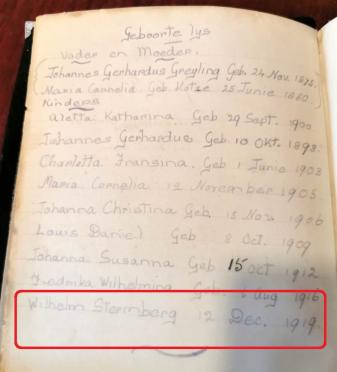 Geboorte lys
Vader en Moeder.
Johannes Gerhardus Greyling Geb. 24 Nov. 1875.
Maria Cornelia Geb. Kotze 25 Junie 1880.
Kinders
Aletta Katharina Geb 29 Sept. 1900
Johannes Gerhardus Geb 10 Okt.
Charlotta Fransina. Geb 1 Junie 1903
Maria Cornelia 12 November 1905
Johanna Christina Geb. 15 Nov. 1906
Louis Daniel Geb 8 Oct. 1909
Johanna Susanna Geb 15 Oct 1912
Fredrika Wilhelmina Geb. 6 Aug 1916
Wilhelm Sternberg 12 Dec. 1919.